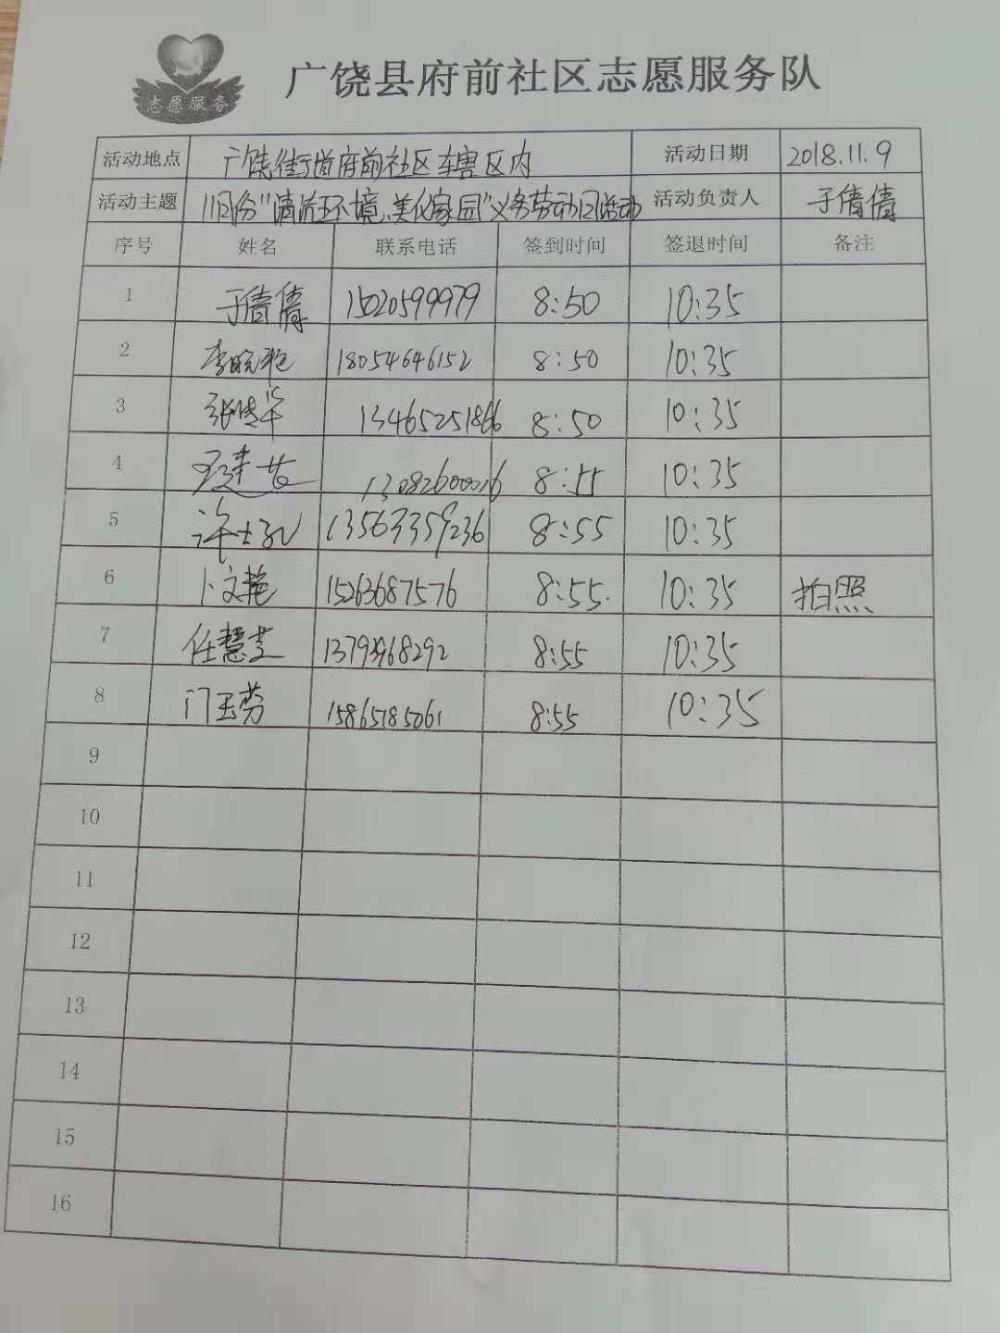 志愿服务
广饶县府前社区志愿服务队
活动地点 广饶街道府前社区辖区内 活动日期 2018.11.9
活动主题 11月份“清洁环境、美化家园”义务劳动日活动 活动负责人 于倩倩
序号 姓名 联系电话 签到时间 签退时间 备注
1 于倩倩 15020599979 8:50 10:35
2 18054646152 8:50 10:35
3 13465251866 8:50 10:35
4 8:55 10:35
5 13563359236 8:55 10:35
6 卜文艳 15263687576 8:55. 10:35 拍照
7 任慧芝 8:55 10:35
8 门玉芬 15865185061 8:55 10:35
9
10
11
12
13
14
15
16